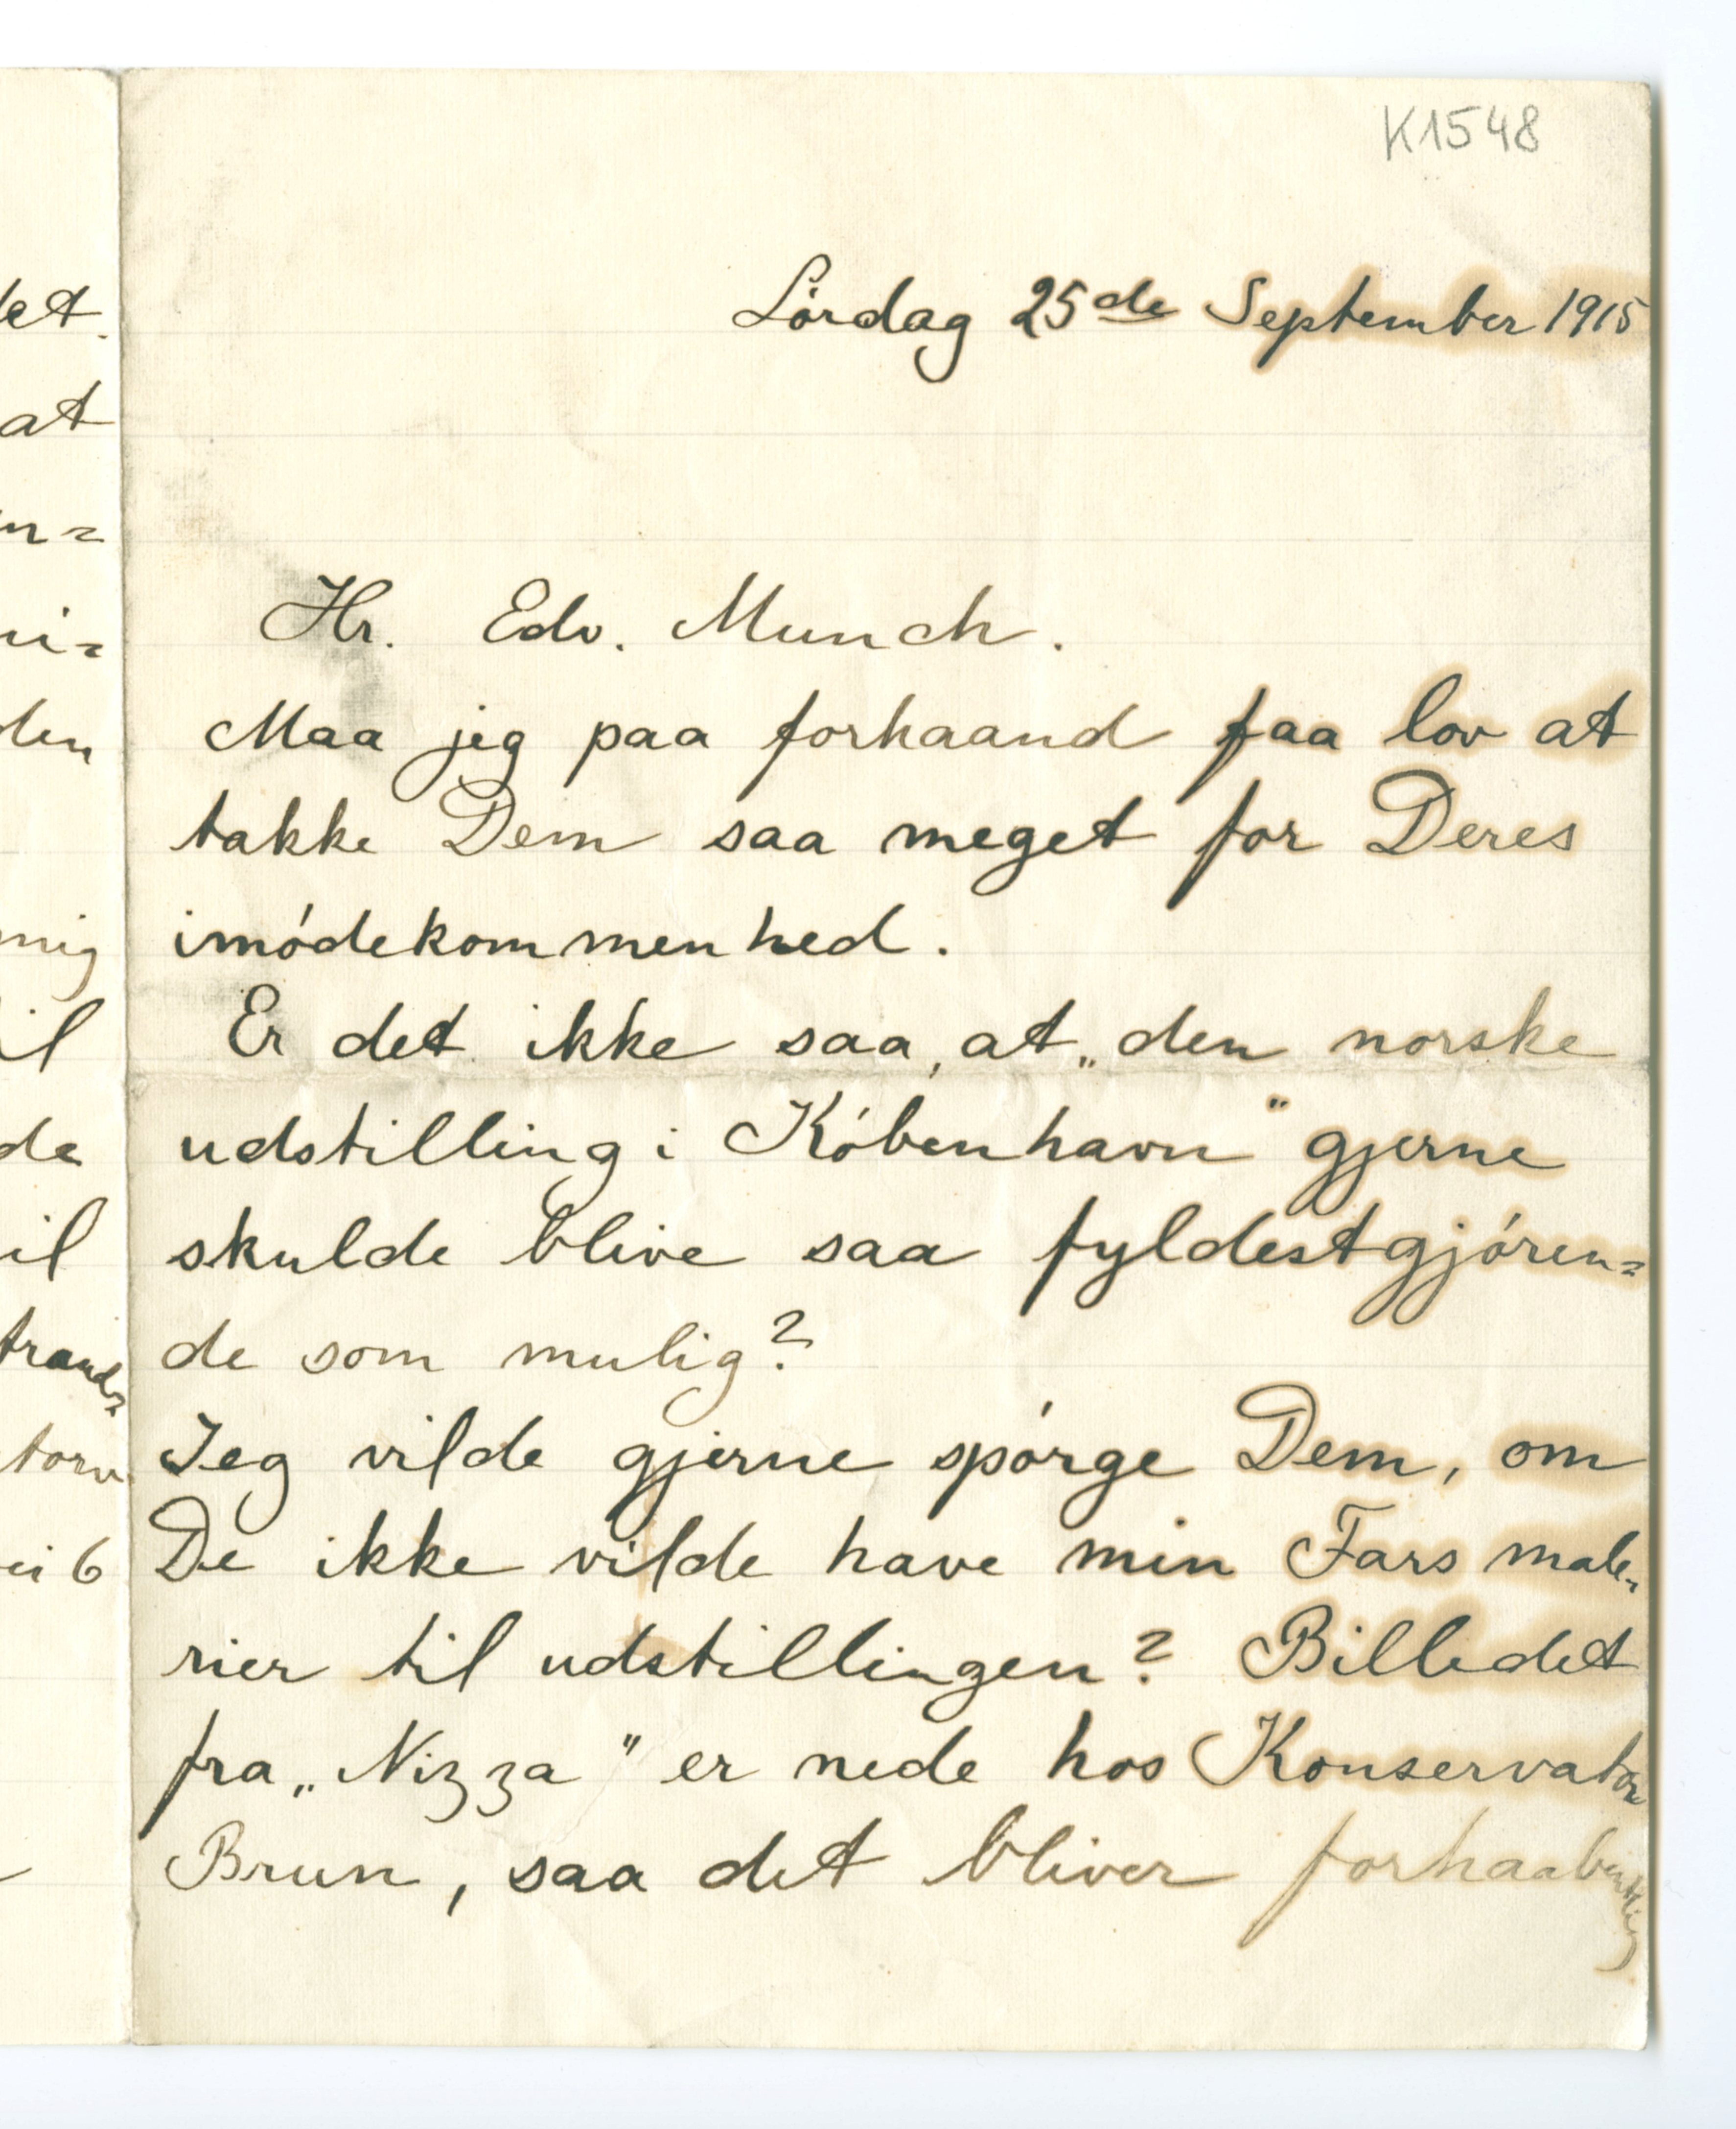 K1548
Lórdag 25de September 1915
Hr. Edv. Munch.
Maa jeg paa forhaand faa lov at
takke Dem saa meget for Deres
imódekommenhed.
Er det ikke saa, at „den norske
udstilling i Kóbenhavn" gjerne
skulde blive saa fyldestgjóren=
de som mulig?
Jeg vilde gjerne spórge Dem, om
De ikke vilde have min Fars male-
rier til udstillingen? Billedet
fra „Nizza" er nede hos Konservator
Brun, saa det bliver forhaabentlig
at
den
mig
il
de
il
ei 6